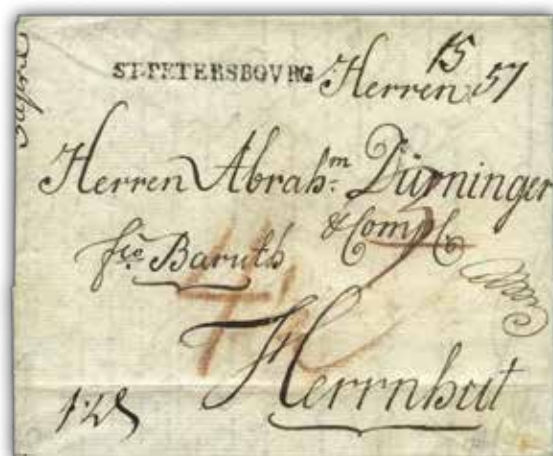 ST.PETERSBOVRG Herren 15 57
Herren Abrahm: Dürninger
& Comp
fco Baruth
Herrnhut